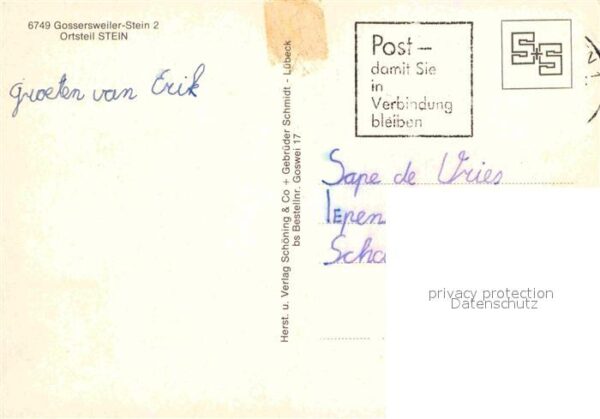 6749 Gossersweiler-Stein 2
Ortsteil STEIN
Groeten van Erik
Herst. u. Verlag Schöning & Co + Gebrüder Schmidt - Lübeck
bs Bestellnr. Goswei 17
Post –
damit Sie
in
Verbindung
bleiben
S+S
Sape de Vries
Iepen
Scho
privacy protection
Datenschutz